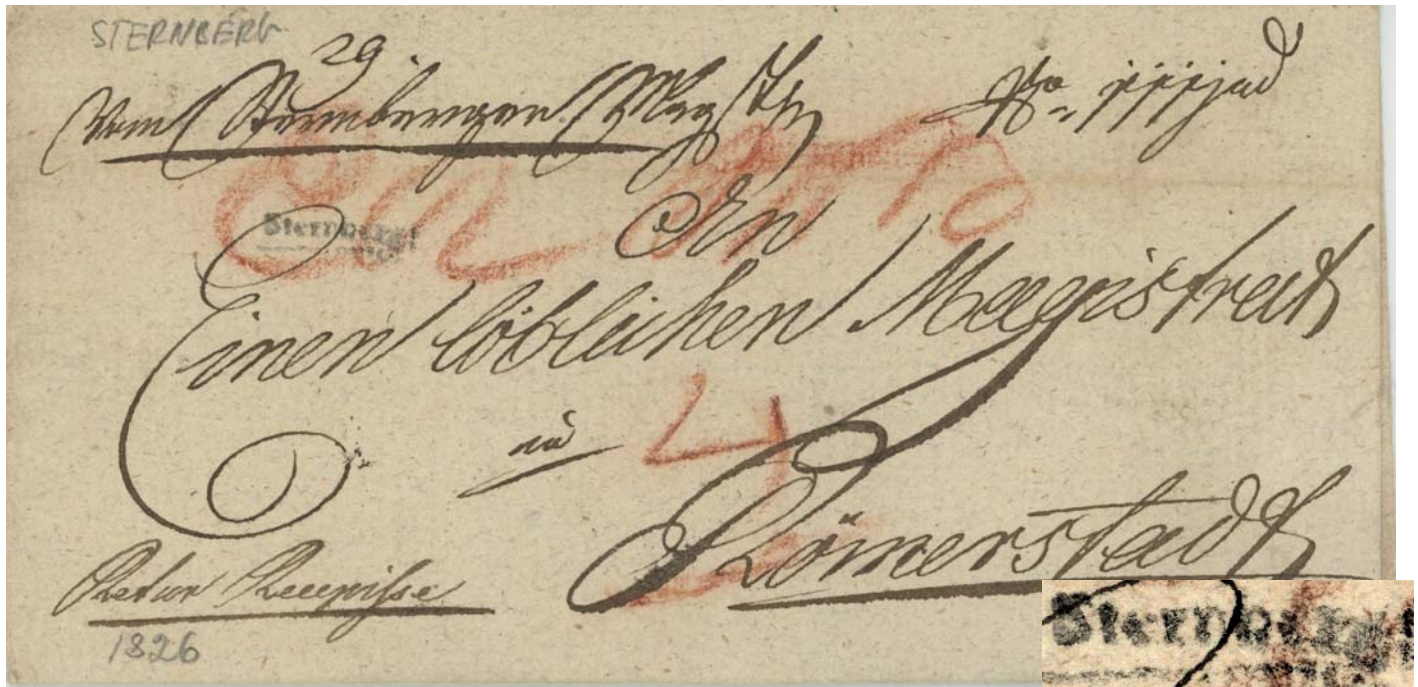 STERNBERG
29
Vom Sternberger Magstr
Sternberg
An
Einen löblichen Magistrat
4
zu
Römerstadt
Retour Recepisse
1826
Sternberg